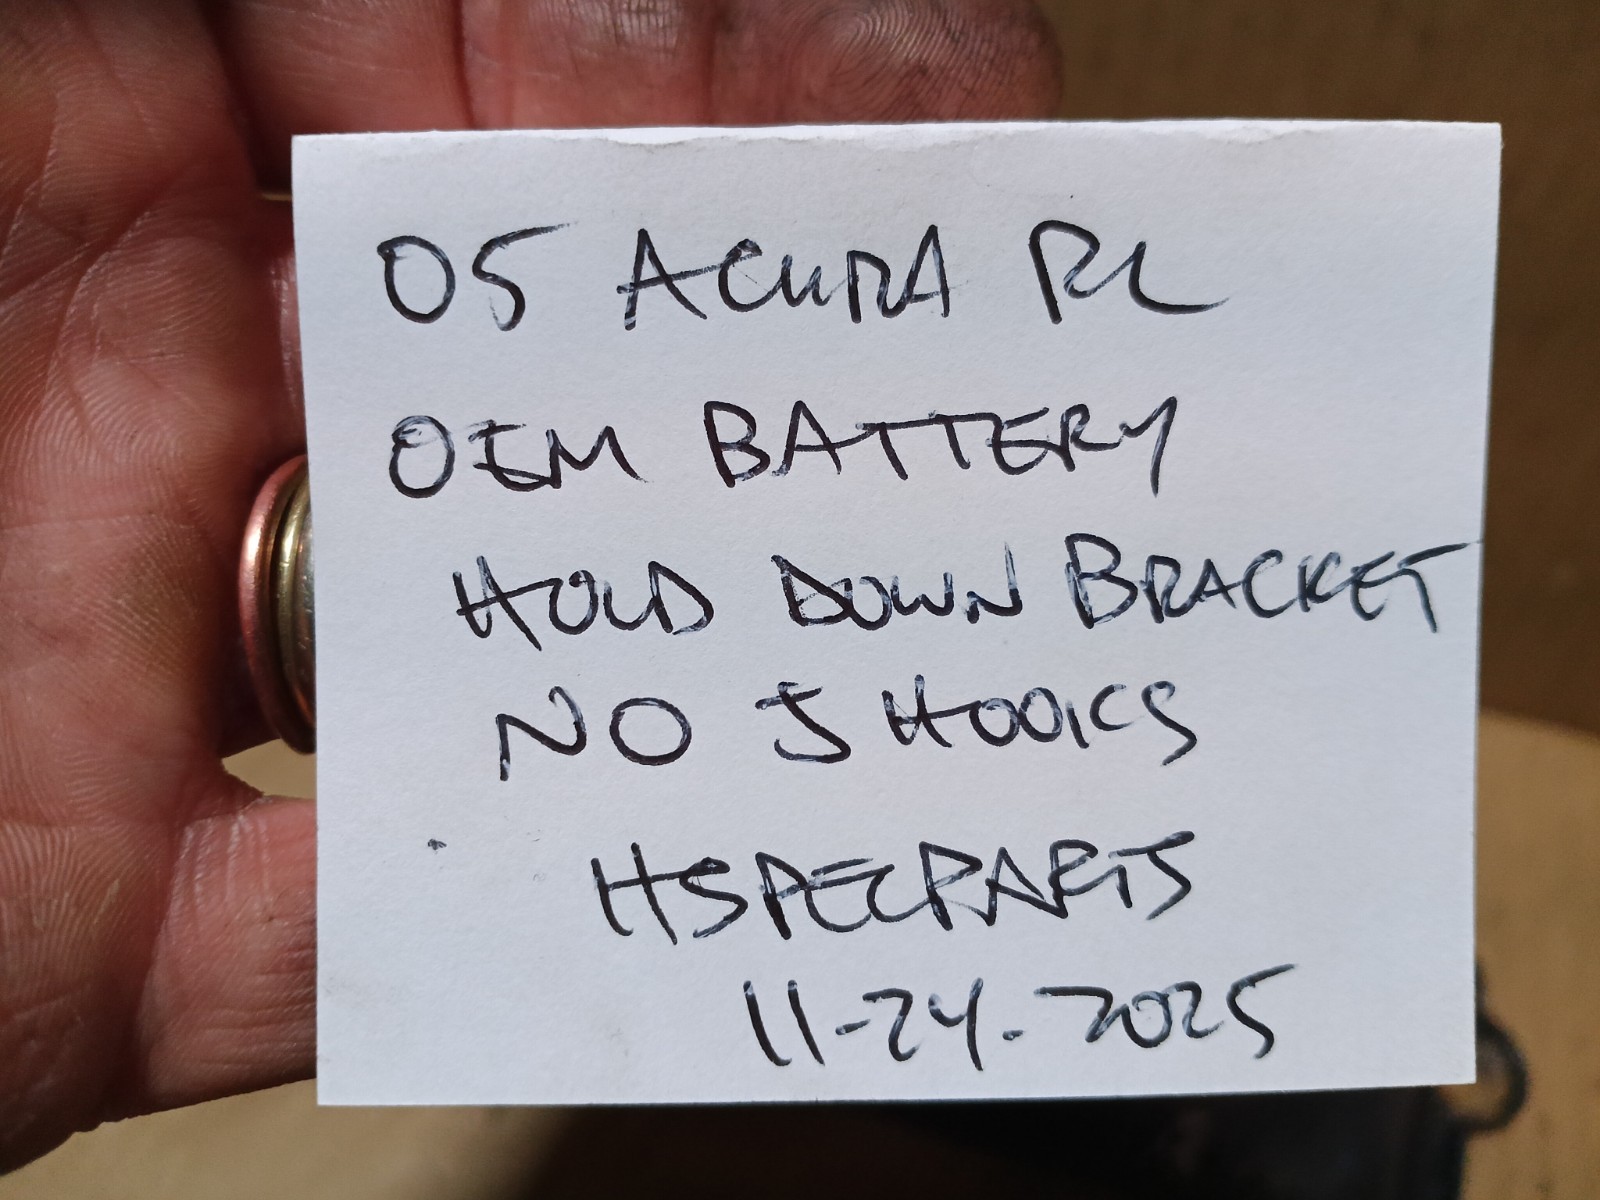 05 ACURA RL
OEM BATTERY
HOLD DOWN BRACKET
NO J HOOKS
HSPECPARTS
11-24-2025